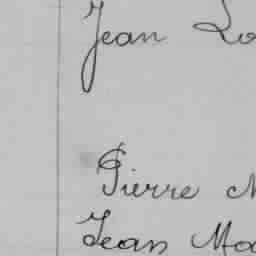 Jean Lo
Pierre M
Jean Ma